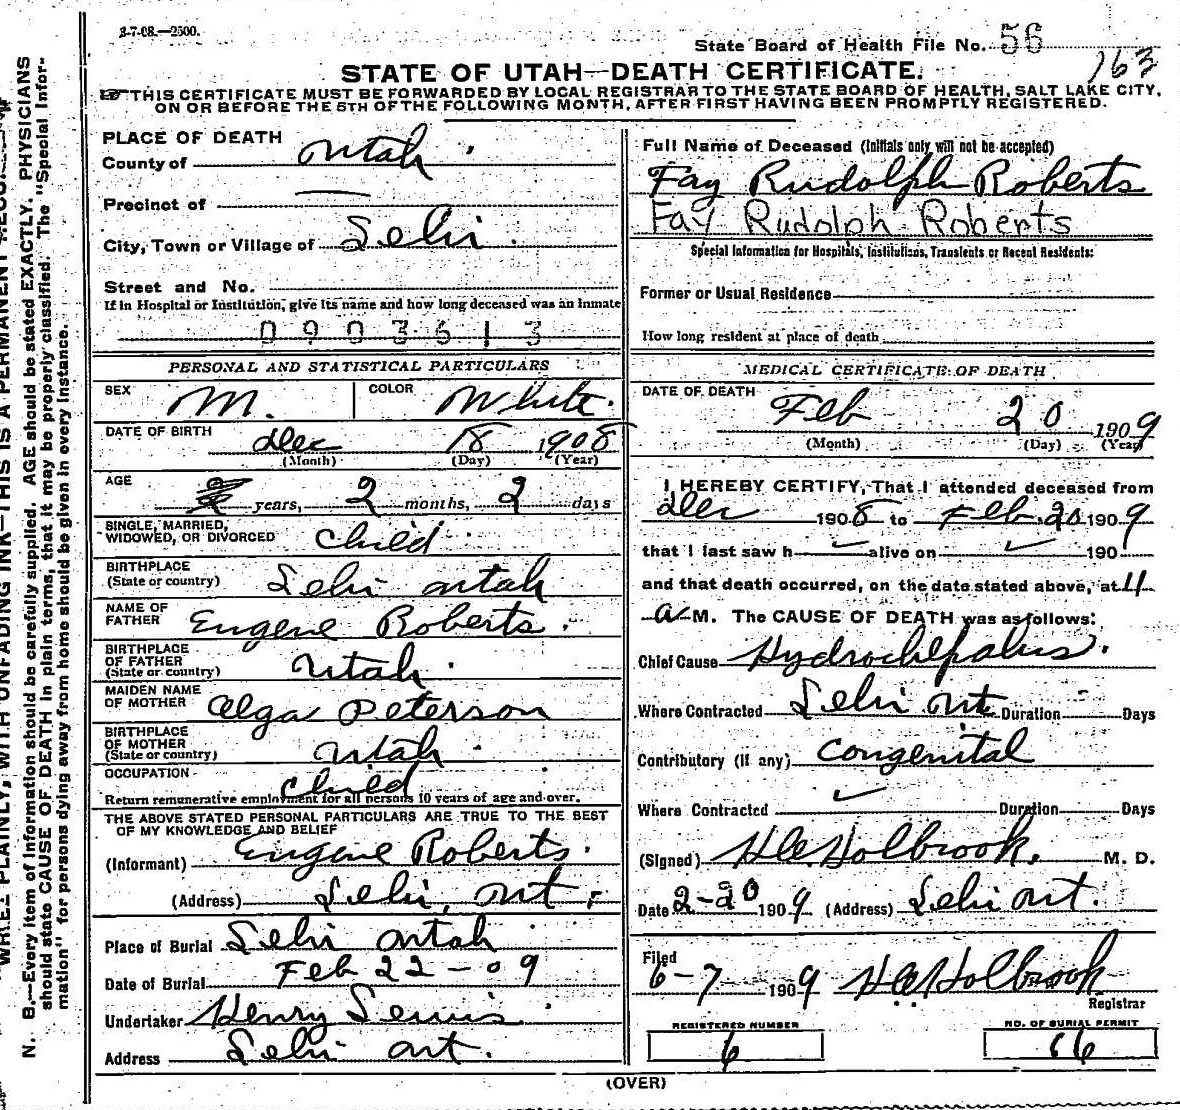 3-7-08.—2500.
State Board of Health File No. 56
163
STATE OF UTAH—DEATH CERTIFICATE.
THIS CERTIFICATE MUST BE FORWARDED BY LOCAL REGISTRAR TO THE STATE BOARD OF HEALTH, SALT LAKE CITY,
ON OR BEFORE THE 5TH OF THE FOLLOWING MONTH, AFTER FIRST HAVING BEEN PROMPTLY REGISTERED.
PLACE OF DEATH
County of Utah
Precinct of
City, Town or Village of Lehi
Street and No.
If in Hospital or Institution, give its name and how long deceased was an inmate
0903613
PERSONAL AND STATISTICAL PARTICULARS
SEX M. COLOR White
DATE OF BIRTH Dec 18 1908
(Month) (Day) (Year)
AGE years, 2 months, 2 days
SINGLE, MARRIED,
WIDOWED, OR DIVORCED Child
BIRTHPLACE
(State or country) Lehi Utah
NAME OF
FATHER Eugene Roberts
BIRTHPLACE
OF FATHER
(State or country) Utah
MAIDEN NAME
OF MOTHER Olga Peterson
BIRTHPLACE
OF MOTHER
(State or country) Utah
OCCUPATION Child
Return remunerative employment for all persons 10 years of age and over.
THE ABOVE STATED PERSONAL PARTICULARS ARE TRUE TO THE BEST
OF MY KNOWLEDGE AND BELIEF
(Informant) Eugene Roberts
(Address) Lehi, Ut.
Place of Burial Lehi Utah
Date of Burial Feb 22-09
Undertaker Henry Lewis
Address Lehi Ut.
Full Name of Deceased (Initials only will not be accepted)
Fay Rudolph Roberts
Fay Rudolph Roberts
Special Information for Hospitals, Institutions, Transients or Recent Residents:
Former or Usual Residence
How long resident at place of death
MEDICAL CERTIFICATE OF DEATH
DATE OF DEATH Feb 20 1909
(Month) (Day) (Year)
I HEREBY CERTIFY, That I attended deceased from
Dec 1908 to Feb. 20 1909
that I last saw h alive on 190
and that death occurred, on the date stated above, at 4
a M. The CAUSE OF DEATH was as follows:
Chief Cause Hydrocephalus.
Where Contracted Lehi Ut Duration Days
Contributory (if any) Congenital
Where Contracted Duration Days
(Signed) H.C. Holbrook. M. D.
Date 2-20 1909 (Address) Lehi Ut.
Filed
6-7 1909 H.C. Holbrook
Registrar
REGISTERED NUMBER
6
NO. OF BURIAL PERMIT
66
(OVER)
N. B.—Every item of information should be carefully supplied. AGE should be stated EXACTLY. PHYSICIANS
should state CAUSE OF DEATH in plain terms, that it may be properly classified. The "Special Infor-
mation" for persons dying away from home should be given in every instance.
WRITE PLAINLY, WITH UNFADING INK—THIS IS A PERMANENT